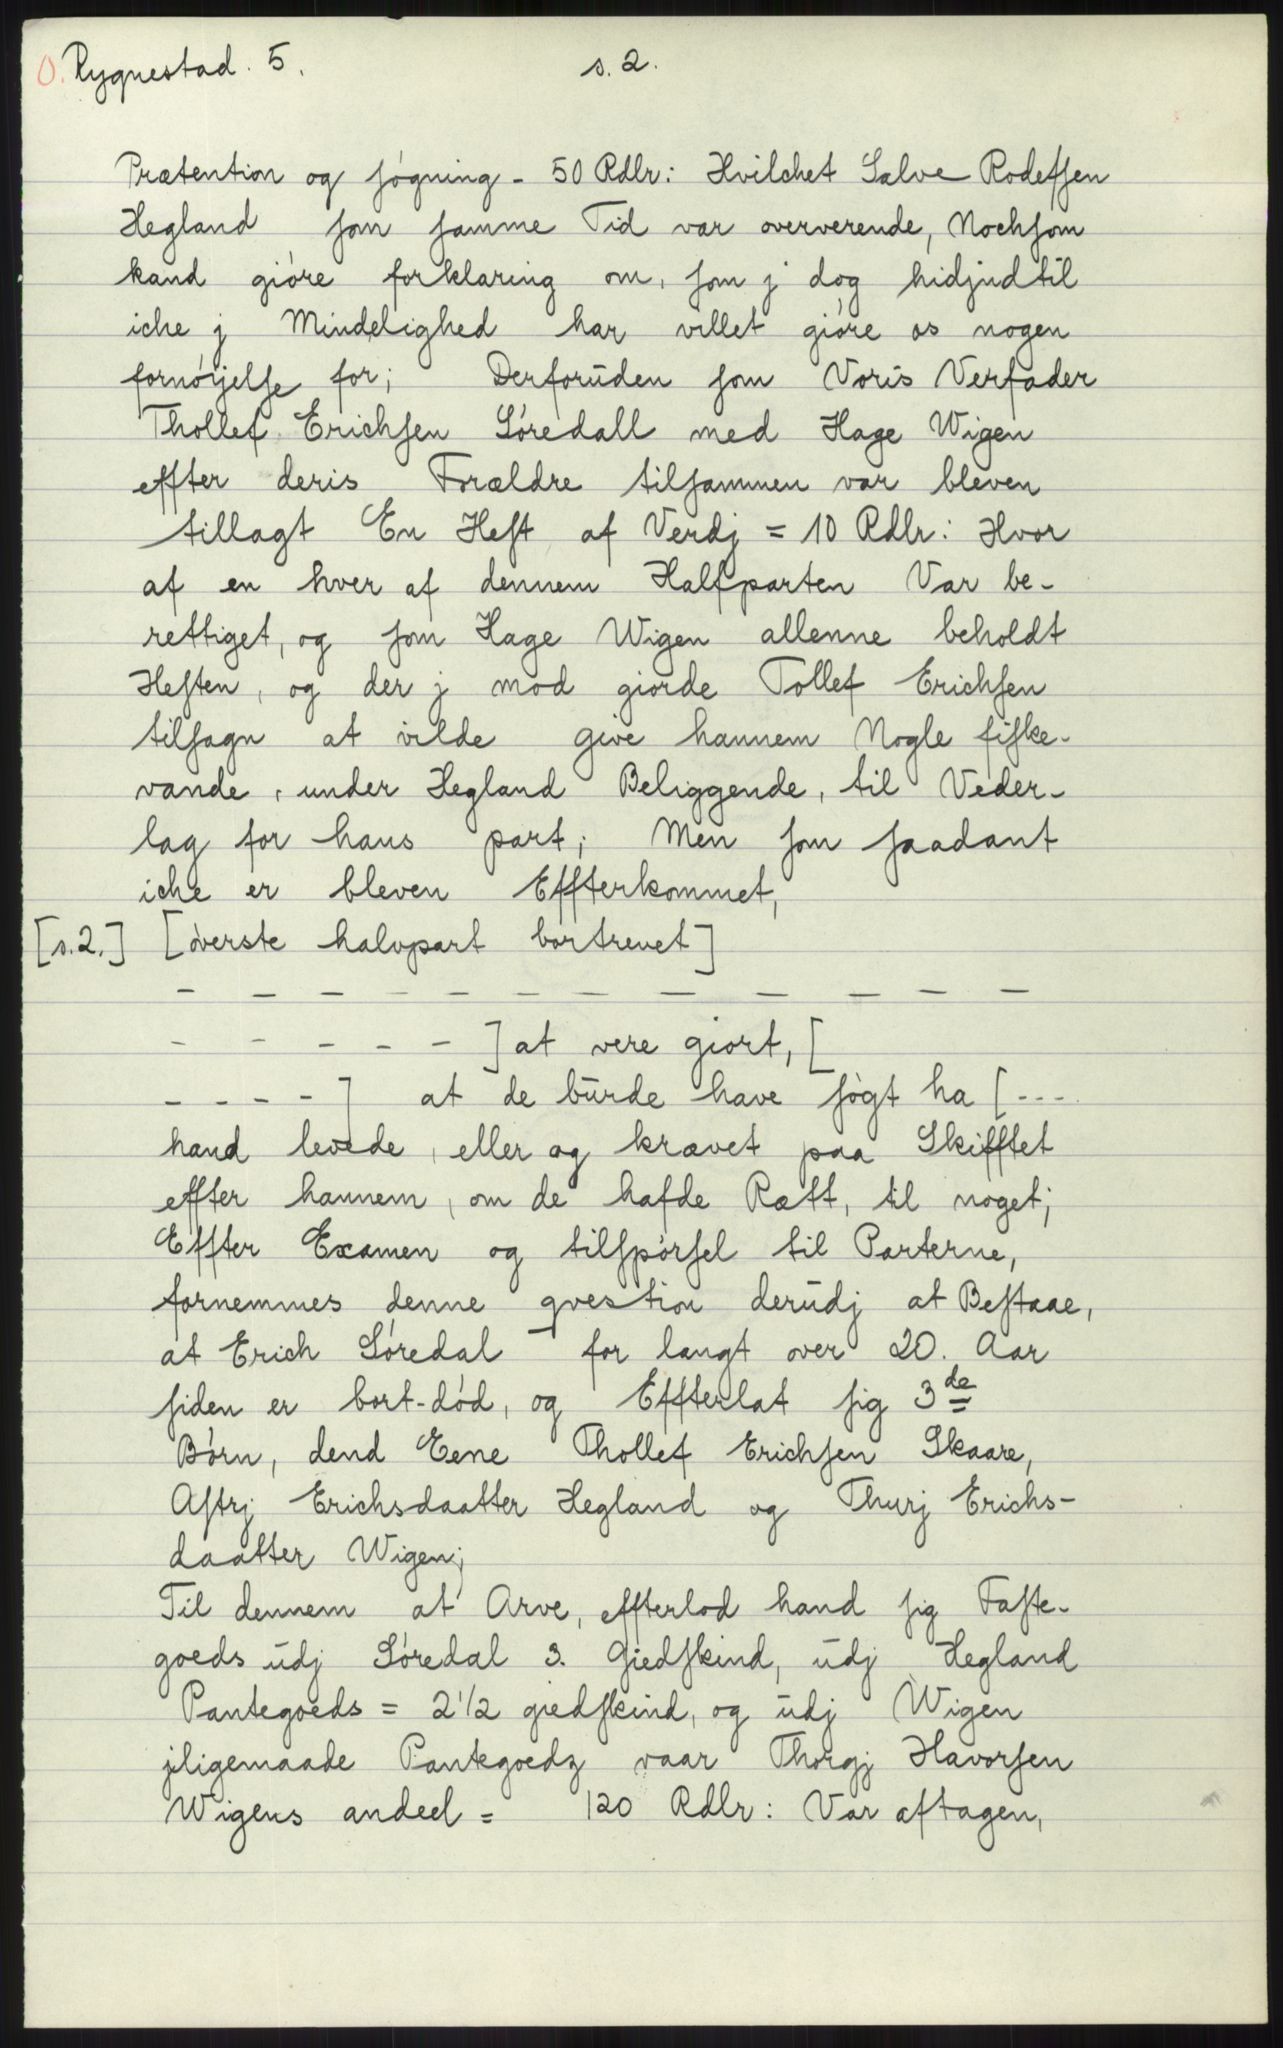 O. Rygnestad. 5. s. 2.
Prætention og søgning - 50 Rdlr: Hvilchet Salve Rodefsen
Hegland som samme Tid var oververende, Nochsom
kand gióre forklaring om, som j dog hidjndtil
iche j Mindelighed har villet gióre os nogen
fornòrjelse for; Derforuden som Voris Verfader
Thollef Erichsen Sóredall med Hage Wigen
effter deris Forældre tilsammen var bleven
tillagt En Hest af Verdj = 10 Rdlr: Hvor
af en hver af dennem Halfparten Var be-
rettiget, og som Hage Wigen allenne beholdt
Hesten, og der j mod giorde Tollef Erichsen
tilsagn at vilde give hannem Nogle fiske-
vande, under Hegland Beliggende, til Veder-
lag for hans part; Men som saadant
iche er bleven Effterkommet,
[s.2.] [òverste halvpart bortrevet]
- - - - - - - - - - - -
- - - - - ] at vere giort, [
- - - - ] at de bùrde have sògt ha [ - - -
hand levede, eller og krævet paa Skifftet
effter hannem, om de hafde Rætt, til noget;
Effter Examen og tilspòrsel til Parterne,
fornemmes denne qvestion derùdj at Bestaae,
at Erich Sóredal for langt over 20. Aar
siden er bort-dód, og Effterlat sig 3de
Bórn, dend Eene Thollef Erichsen Skaare,
Astrj Erichsdaatter Hegland og Thurj Erichs-
daatter Wigen;
Til dennem at Arve, effterlod hand sig Faste-
goeds ùdj Sóredal 3. Giedskind, ùdj Hegland
Pantegoeds = 2 1/2 giedskind, og ùdj Wigen
jligemaade Pantegoedz vaar Thorgj Havorsen
Wigens andeel = 120 Rdlr: Var aftagen,